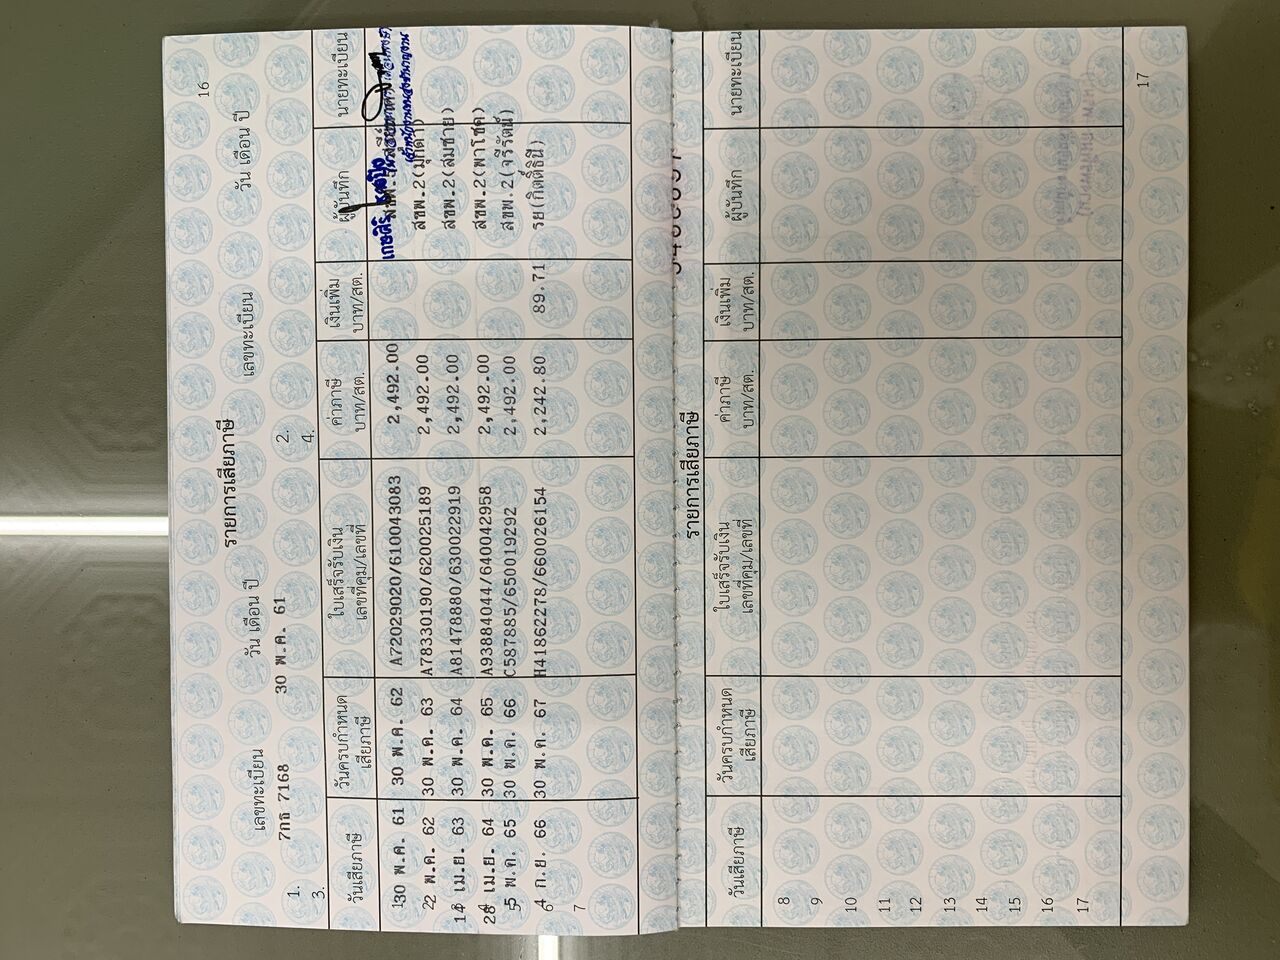 16
รายการเสียภาษี
เลขทะเบียน วัน เดือน ปี เลขทะเบียน วัน เดือน ปี
1. 7กธ 7168 30 พ.ค. 61 2.
3. 4.
วันเสียภาษี วันครบกำหนดเสียภาษี ใบเสร็จรับเงิน เลขที่คุม/เลขที่ ค่าภาษี บาท/สต. เงินเพิ่ม บาท/สต. ผู้บันทึก นายทะเบียน
1 30 พ.ค. 61 30 พ.ค. 62 A72029020/610043083 2,492.00
2 2 พ.ค. 62 30 พ.ค. 63 A78330190/620025189 2,492.00 สขพ.2(มุกดา)
1 เม.ย. 63 30 พ.ค. 64 A81478880/630022919 2,492.00 สขพ.2(สมชาย)
28 เม.ย. 64 30 พ.ค. 65 A93884044/640042958 2,492.00 สขพ.2(พาโชค)
5 พ.ค. 65 30 พ.ค. 66 C587885/650019292 2,492.00 สขพ.2(จรีรัตน์)
6 4 ก.ย. 66 30 พ.ค. 67 H41862278/660026154 2,242.80 89.71 รย(กิตติ์ธินี)
7
รายการเสียภาษี
วันเสียภาษี วันครบกำหนดเสียภาษี ใบเสร็จรับเงิน เลขที่คุม/เลขที่ ค่าภาษี บาท/สต. เงินเพิ่ม บาท/สต. ผู้บันทึก นายทะเบียน
8
9
10
11
12
13
14
15
16
17
17